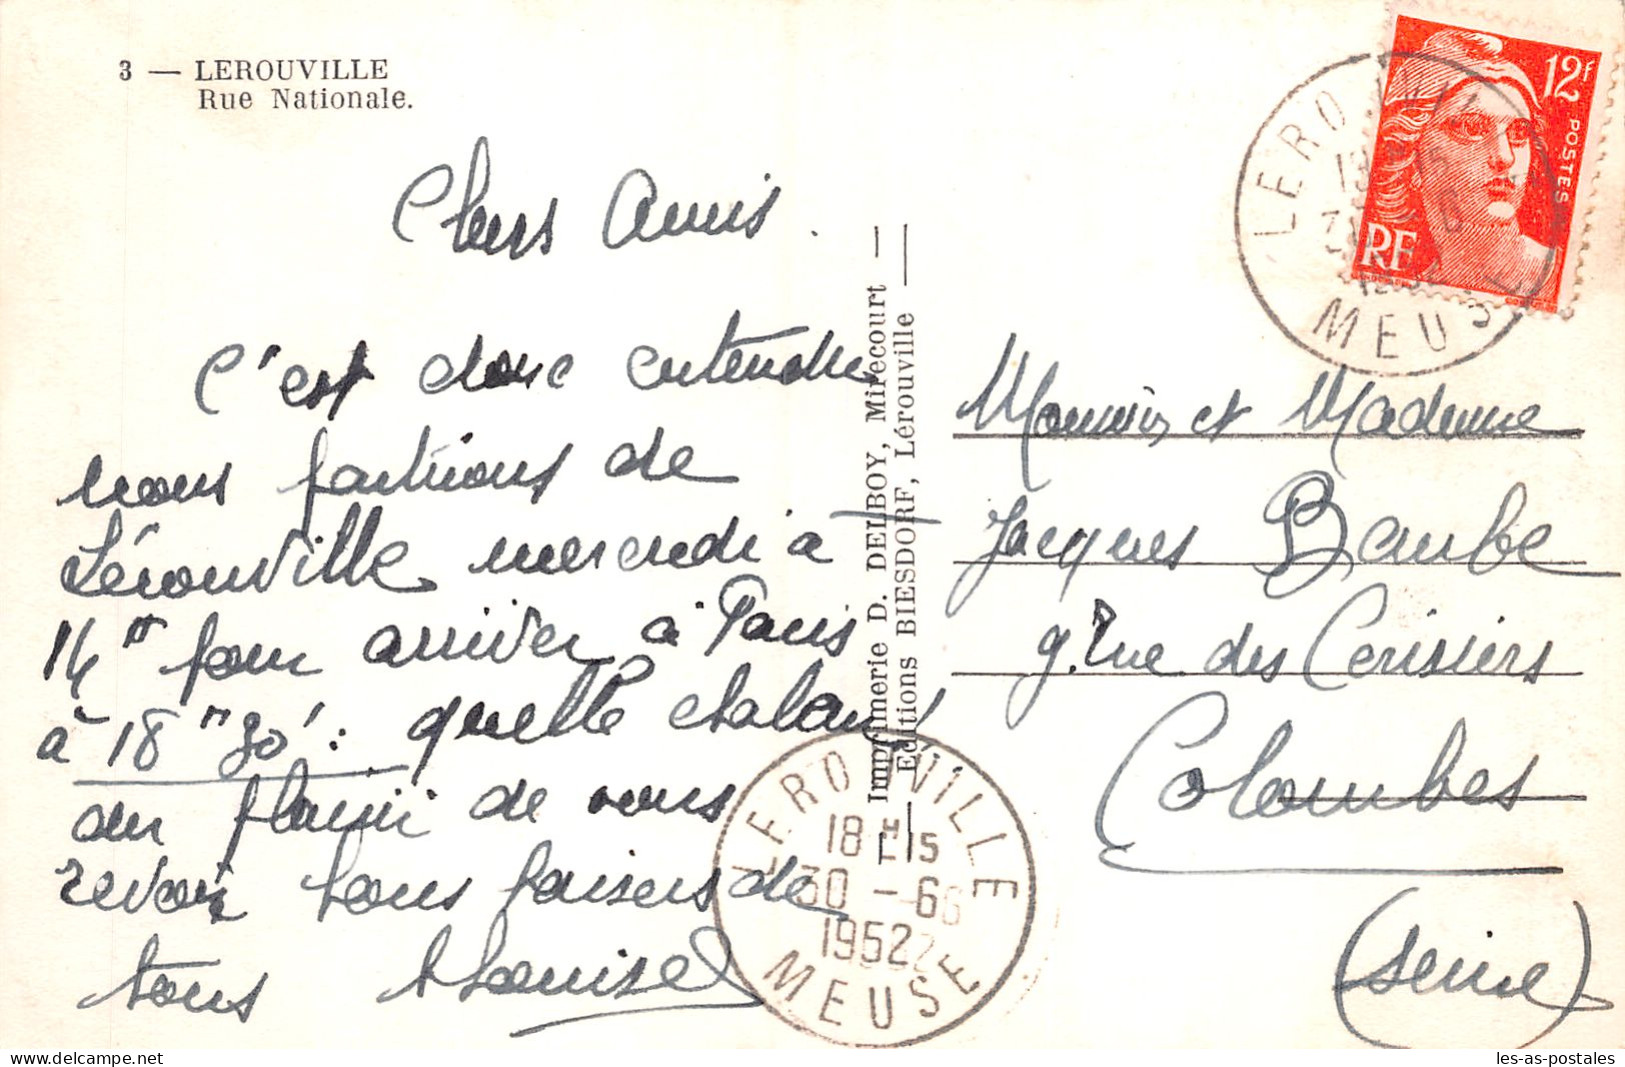 3 — LEROUVILLE
Rue Nationale.
Chers Amis.
C'est donc entendu
nous partirons de
Lérouville mercredi à
14 H pour arriver à Paris
à 18 H 30' : quelle chaleur,
au plaisir de vous
revoir bons baisers de
tous Louise
Imprimerie D. DELBOY, Mirecourt —
Editions BIESDORF, Lérouville —
12F
POSTES
RF
LEROUVILLE
MEUSE
Monsieur et Madame
Jacques Baube
9. rue des Cerisiers
Colombes
(Seine)
LEROUVILLE
18 H 15
30 - 6
1952
MEUSE
les-as-postales